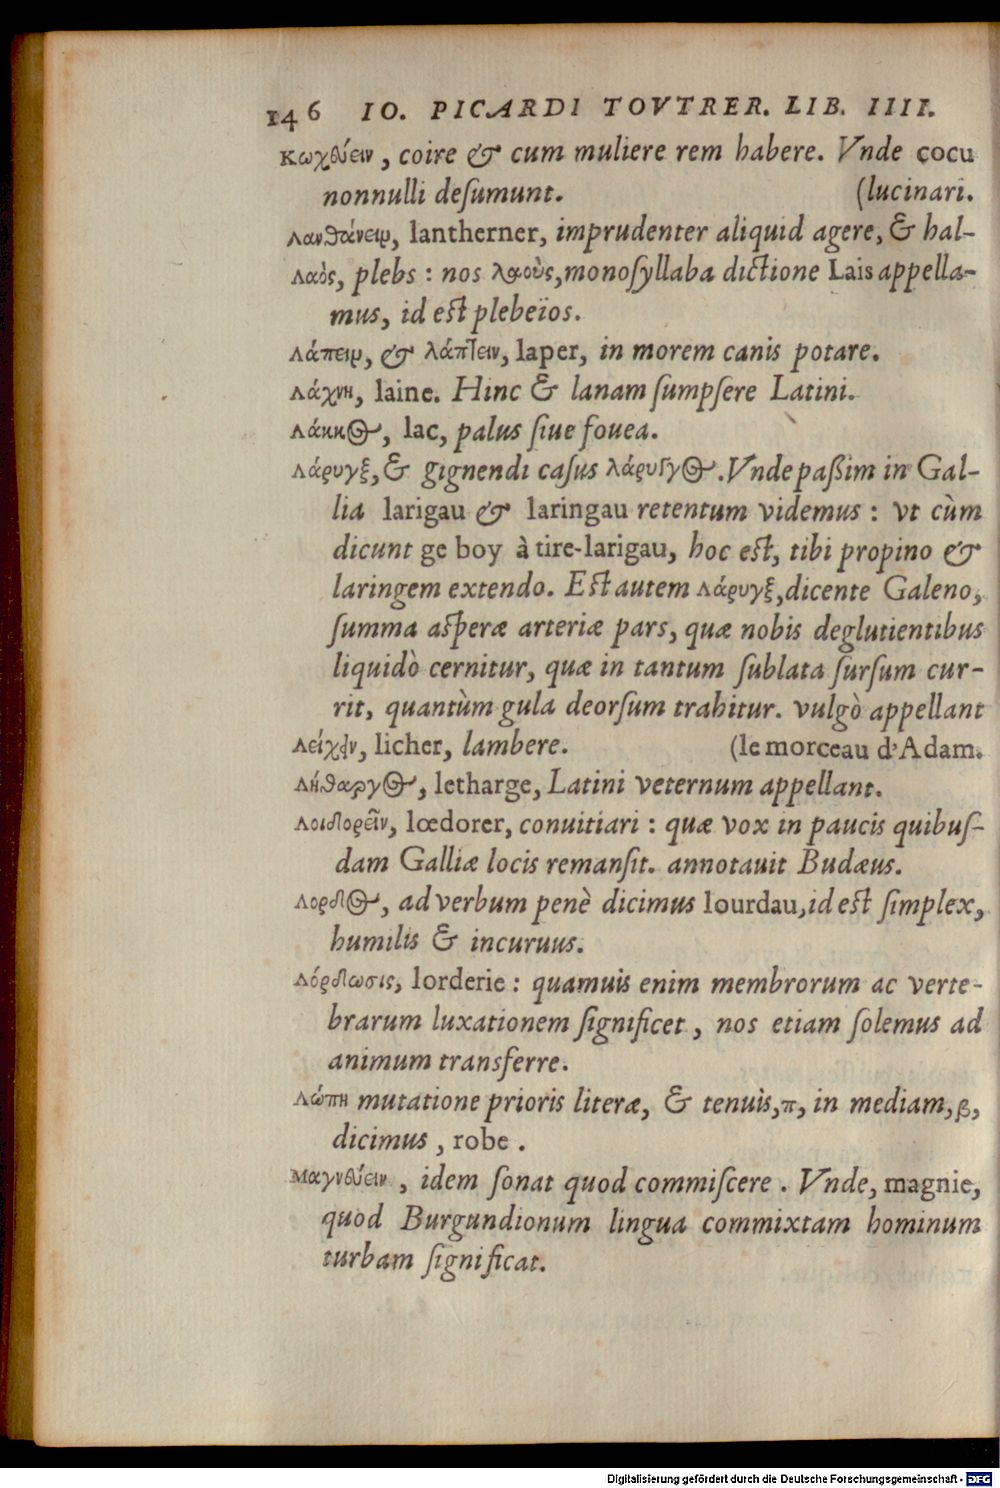 146 IO. PICARDI TOVTRER. LIB. IIII.
Κωχθύειν, coire & cum muliere rem habere. Vnde cocu
nonnulli deſumunt. (lucinari.
Λανθάνειν, lantherner, imprudenter aliquid agere, & hal-
Λαὸς, plebs : nos λαοὺς, monoſyllaba dictione Lais appella-
mus, id est plebeïos.
Λάπειν, & λάπτειν, laper, in morem canis potare.
Λάχνη, laine. Hinc & lanam ſumpſere Latini.
Λάκκος, lac, palus ſiue fouea.
Λάρυγξ, & gignendi caſus λάρυγγος. Vnde paßim in Gal-
lia larigau & laringau retentum videmus : vt cùm
dicunt ge boy à tire-larigau, hoc est, tibi propino &
laringem extendo. Est autem Λάρυγξ, dicente Galeno,
ſumma asperæ arteriæ pars, quæ nobis deglutientibus
liquidò cernitur, quæ in tantum ſublata ſurſum cur-
rit, quantùm gula deorſum trahitur. vulgò appellant
Λείχειν, licher, lambere. (le morceau d'Adam.
Λήθαργος, letharge, Latini veternum appellant.
Λοιδορεῖν, lœdorer, conuitiari : quæ vox in paucis quibuſ-
dam Galliæ locis remanſit. annotauit Budæus.
Λορδος, ad verbum penè dicimus lourdau, id est ſimplex,
humilis & incuruus.
Λόρδωσις, lorderie : quamuis enim membrorum ac verte-
brarum luxationem ſignificet, nos etiam ſolemus ad
animum transferre.
Λώπη mutatione prioris literæ, & tenuis, π, in mediam, β,
dicimus, robe.
Μαγνύειν, idem ſonat quod commiſcere. Vnde, magnie,
quod Burgundionum lingua commixtam hominum
turbam ſignificat.
Digitalisierung gefördert durch die Deutsche Forschungsgemeinschaft - DFG